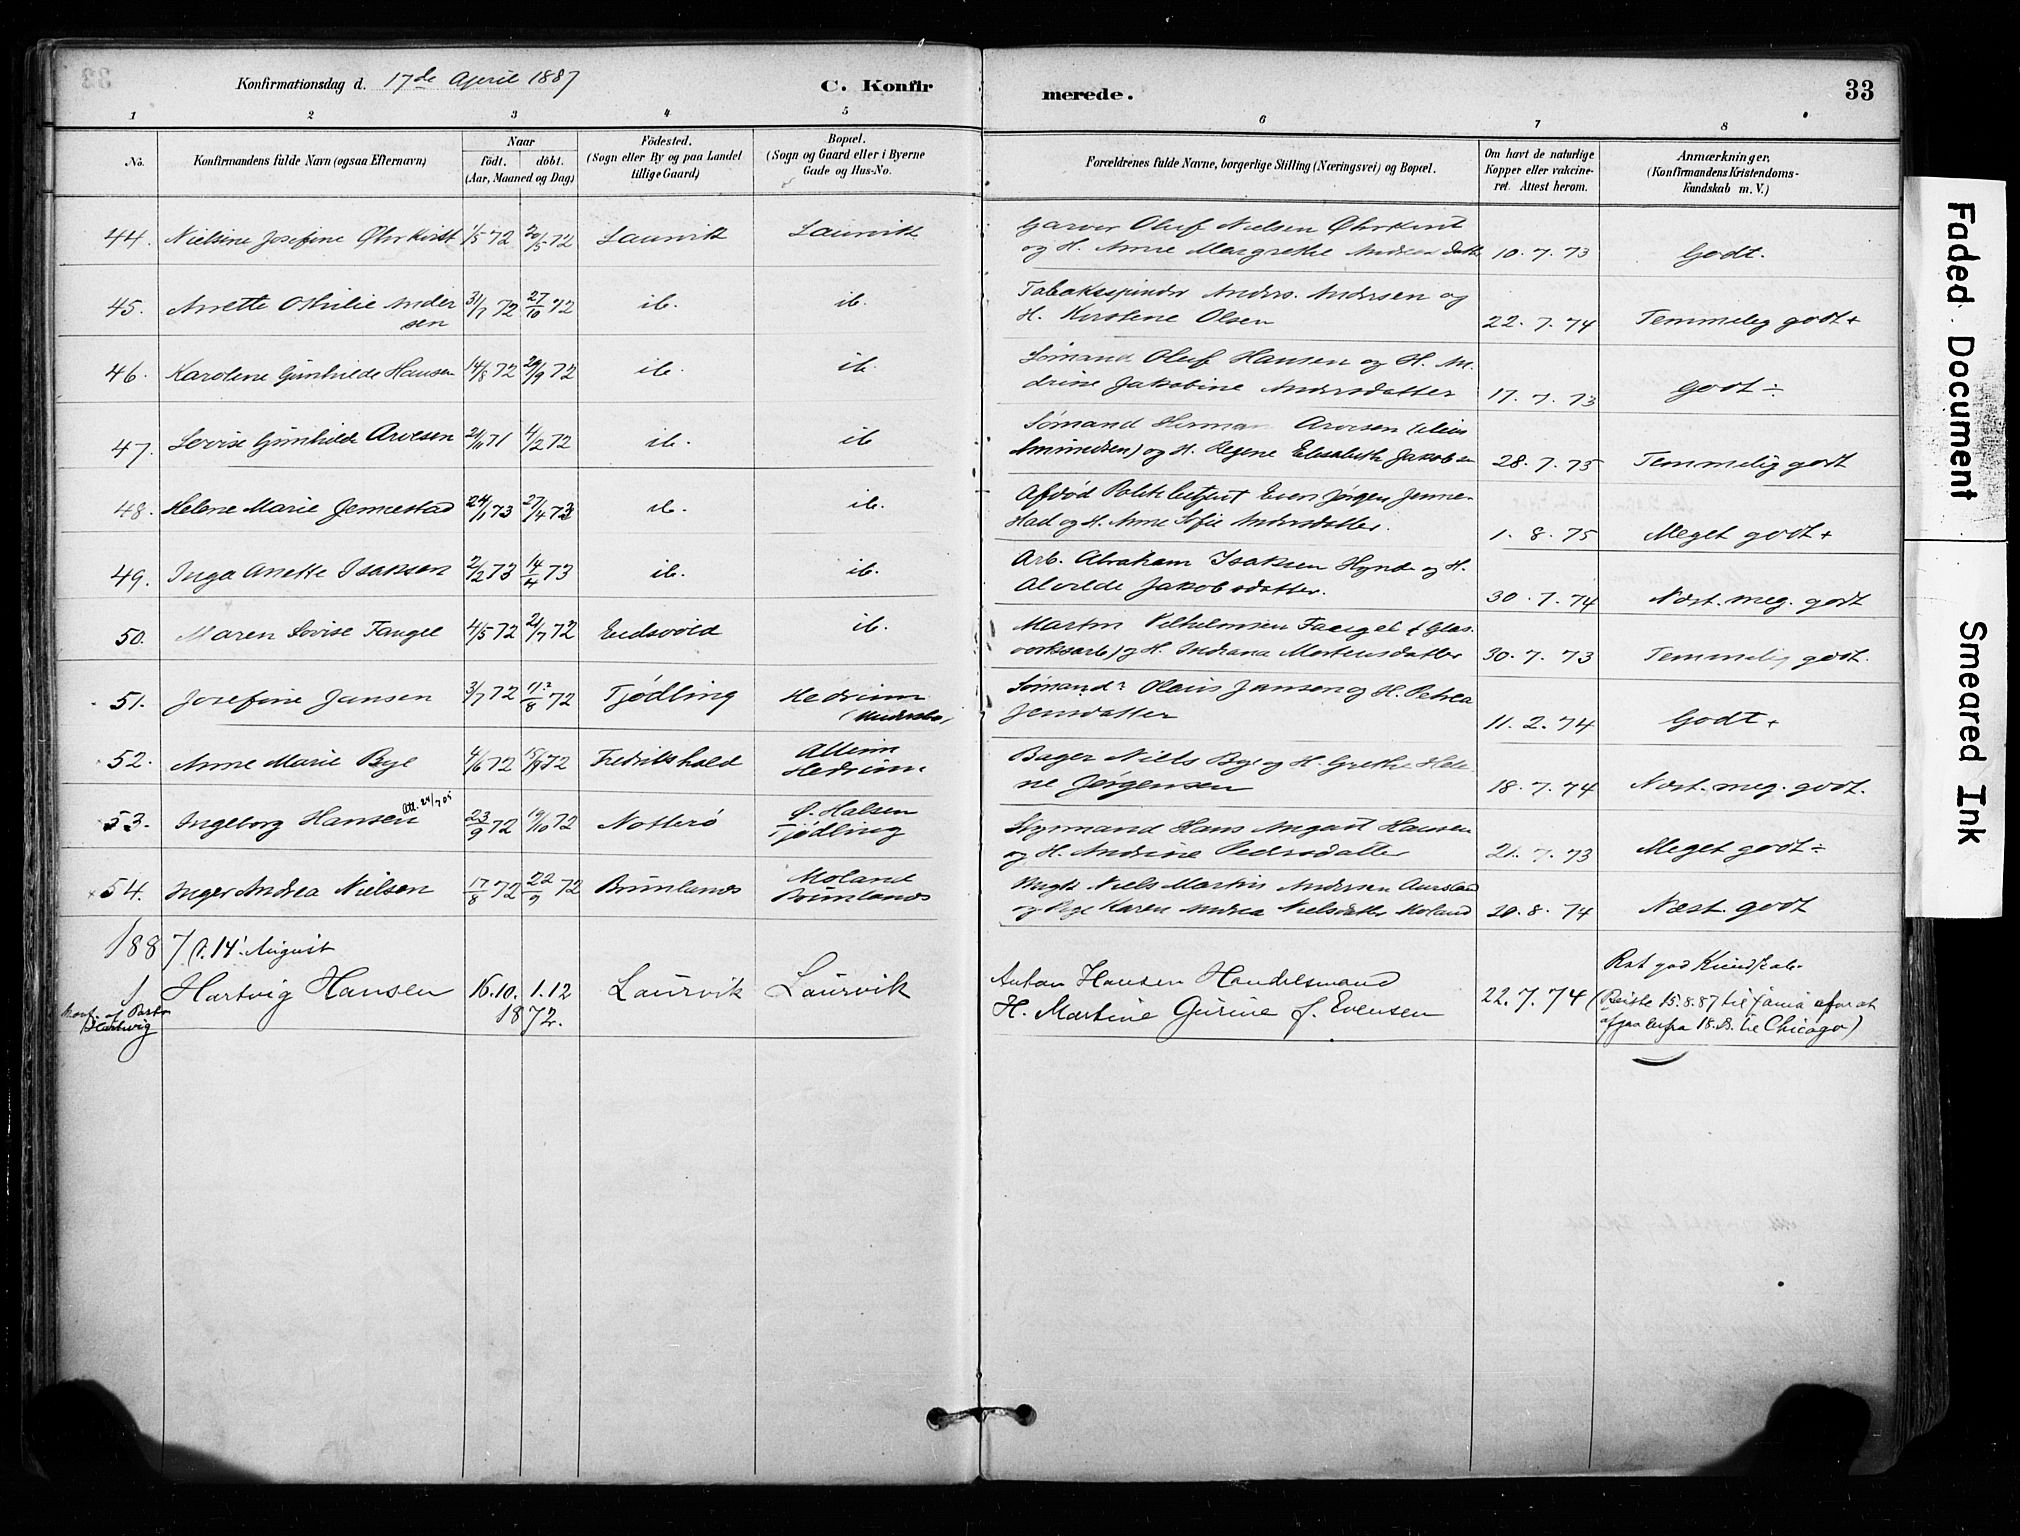 Konfirmationsdag d. 17de April 1887
C. Konfir merede. 33
1 2 3 4 5 6 7 8
No. Konfirmandens fulde Navn (ogsaa Efternavn) Naar født. døbt. (Aar, Maaned og Dag) Fødested. (Sogn eller By og paa Landet tillige Gaard) Bopæl. (Sogn og Gaard eller i Byerne Gade og Hus-No. Forældrenes fulde Navne, borgerlige Stilling (Næringsvei) og Bopæl. Om havt de naturlige Kopper eller vakcineret. Attest herom. Anmærkninger. (Konfirmandens Kristendomskundskab m. V.)
44. Nielsine Josefine Øhrkvist 1/5 72 20/5 72 Laurvik Laurvik Garver Oluf Nielsen Øhrkvist
og H. Anne Margrethe 10. 7. 73 Godt.
45. Anette Othilie Andersen 31/7 72 27/10 72 ib. ib. Tobaksspinder Anders Andersen og
H. Kirstene Olsen 22. 7. 74 Temmelig godt+
46. Karoline Gunhilde Hansen 14/8 72 29/9 72 ib. ib. Sømand Oluf Hansen og H.
Jakobine Andersdatter 17. 7. 73 Godt ÷
47. Lovise Gunhilde Arvesen 21/11 71 4/2 72 ib. ib Sømand Herman Arvesen
og H. Regine Elisabeth 28. 7. 75 Temmelig godt
48. Helene Marie Jennestad 24/1 73 27/4 73 ib. ib. Afdød Even Jørgen Jennestad
og H. Anne Sofie Andersdatter. 1. 8. 75 Meget godt +
49. Inga Anette Isaksen 2/2 73 14/4 73 ib. ib. Arb. Abraham Isaksen og H.
Alvilde Jakobsdatter. 30. 7. 74 Næst. meg. godt
50. Maren Lovise Faugel 4/5 72 21/7 72 Eidsvold ib. Martin Vilhelmsen Faugel
og H. Indiana Mortensdatter 30. 7. 73 Temmelig godt.
51. Josefine Jansen 3/7 72 72 Tjødling Hedrum Sømand Olaus Jansen og H. Petrea
Jensdatter 11. 2. 74 Godt +
52. Anne Marie Bye 4/6 72 72 Fredrikshald Hedrum. Bager Niels Bye og H. Grethe Helene
Jørgensen 18. 7. 74 Næst. meg. godt.
53. Ingeborg Hansen Att. 24/7 05 23/9 72 19/10 72 Notterø Ø. Halsen
Tjødling Styrmand Hans August Hansen
og H. Andrine Pedersdatter 21. 7. 73 Meget godt ÷
54. Inger Andrea Nielsen 17/8 72 22/9 72 Brunlanæs Moland
Brunlanæs Niels Martin Andersen
og Pige Karen Andrea Nielsdatter Moland 20. 8. 74 Næst. godt
1887 d. 14. August
1 Hartvig Hansen 16.10. 1.12 1872. Laurvik Laurvik Anton Hansen Handelsmand
H. Martine Gurine f. Evensen 22. 7. 74 Ret god Kundskab.
(Reiste 15.8.87 til
18.8. til Chicago)
Konf. af Pastor
Hartvig
Faded Document
Smeared Ink